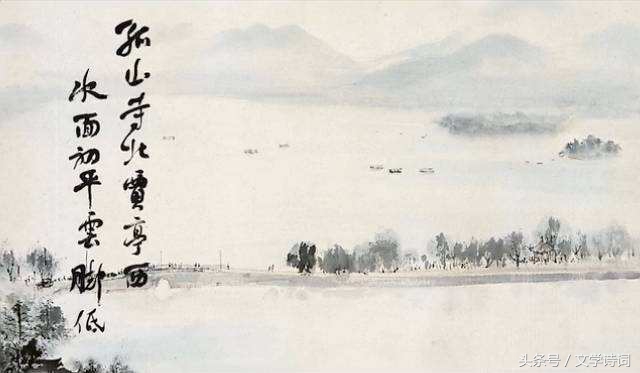 孤山寺北賈亭西
水面初平雲脚低
头条号 / 文学诗词